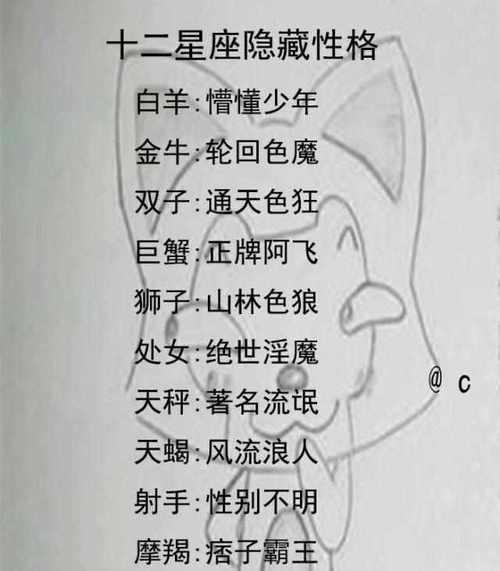 十二星座隐藏性格
白羊:懵懂少年
金牛:轮回色魔
双子:通天色狂
巨蟹:正牌阿飞
狮子:山林色狼
处女:绝世淫魔
@ c
天秤:著名流氓
天蝎:风流浪人
射手:性别不明
摩羯:痞子霸王